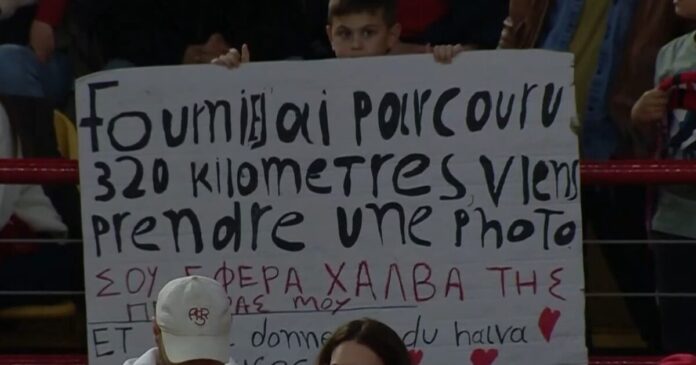 Fournier j'ai parcouru
320 kilometres, viens
prendre une photo
ΣΟΥ ΕΦΕΡΑ ΧΑΛΒΑ ΤΗΣ
ΜΟΥ
ET donne du halva